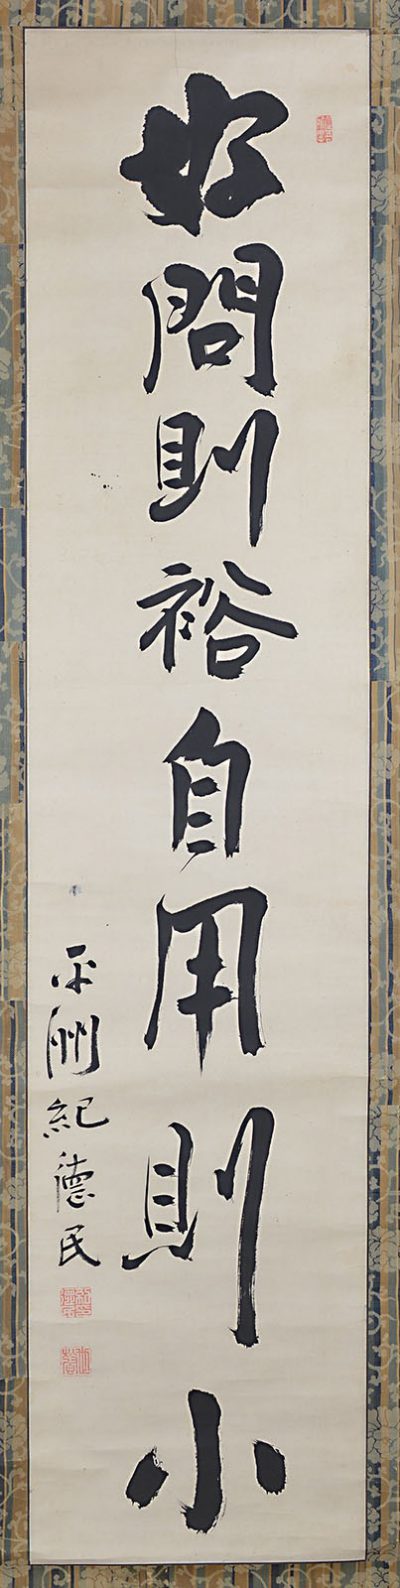 好問則裕自用則小
平洲紀德民